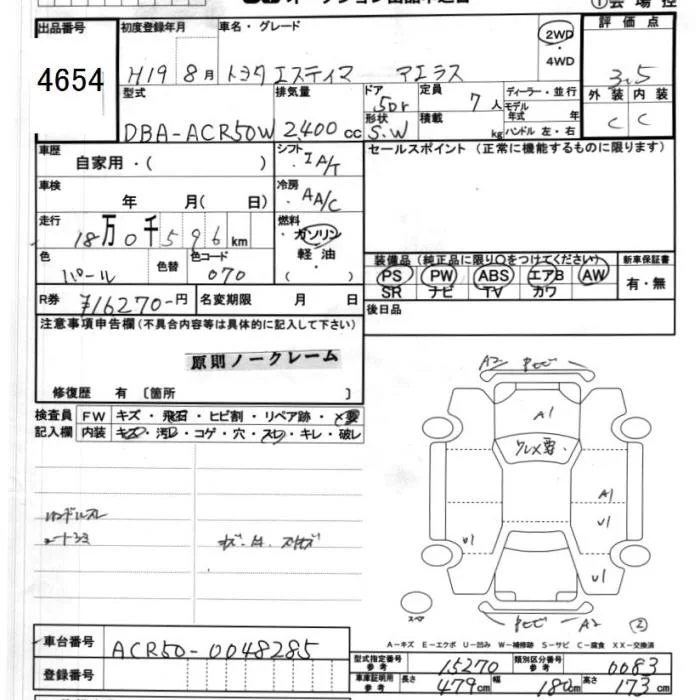 ①会場控
出品番号
4654
初度登録年月
H19 8月
車名・グレード
トヨタ エスティマ アエラス
2WD
・
4WD
評価点
3.5
外装 内装
C C
型式
DBA-ACR50W
排気量
2,400 cc
ドア
5Dr
形状
S.W
定員
7 人
積載
kg
ディーラー・並行
モデル
年式 年
ハンドル 左・右
車歴
自家用・( )
シフト
IA/T
セールスポイント (正常に機能するものに限ります)
車検
年 月( 日)
冷房
AA/C
走行
18万0千596km
燃料
・ガソリン
軽油・
( )
色
パール
色替
色コード
070
装備品(純正品に限り○をつけてください)
PS PW ABS エアB AW
SR ナビ TV カワ
新車保証書
有・無
R券
¥16270-円
名変期限 月 日
後日品
注意事項申告欄(不具合内容等は具体的に記入して下さい)
原則ノークレーム
修復歴 有〔箇所 〕
検査員 FW キズ・飛石・ヒビ割・リペア跡・×要
記入欄 内装 キズ・汚れ・コゲ・穴・スレ・キレ・破レ
ハンドルスレ
シートシミ
A2
A1
A1
U1
U1
U1
A2
スペア
②
A-キズ E-エクボ U-凹み W-補修跡 S-サビ C-腐食 XX-交換済
車台番号
ACR50-0048285
登録番号
型式指定番号
参考
15270
類別区分番号
参考
0083
車庫証明用
参考
長さ
479cm
幅
180cm
高さ
173cm